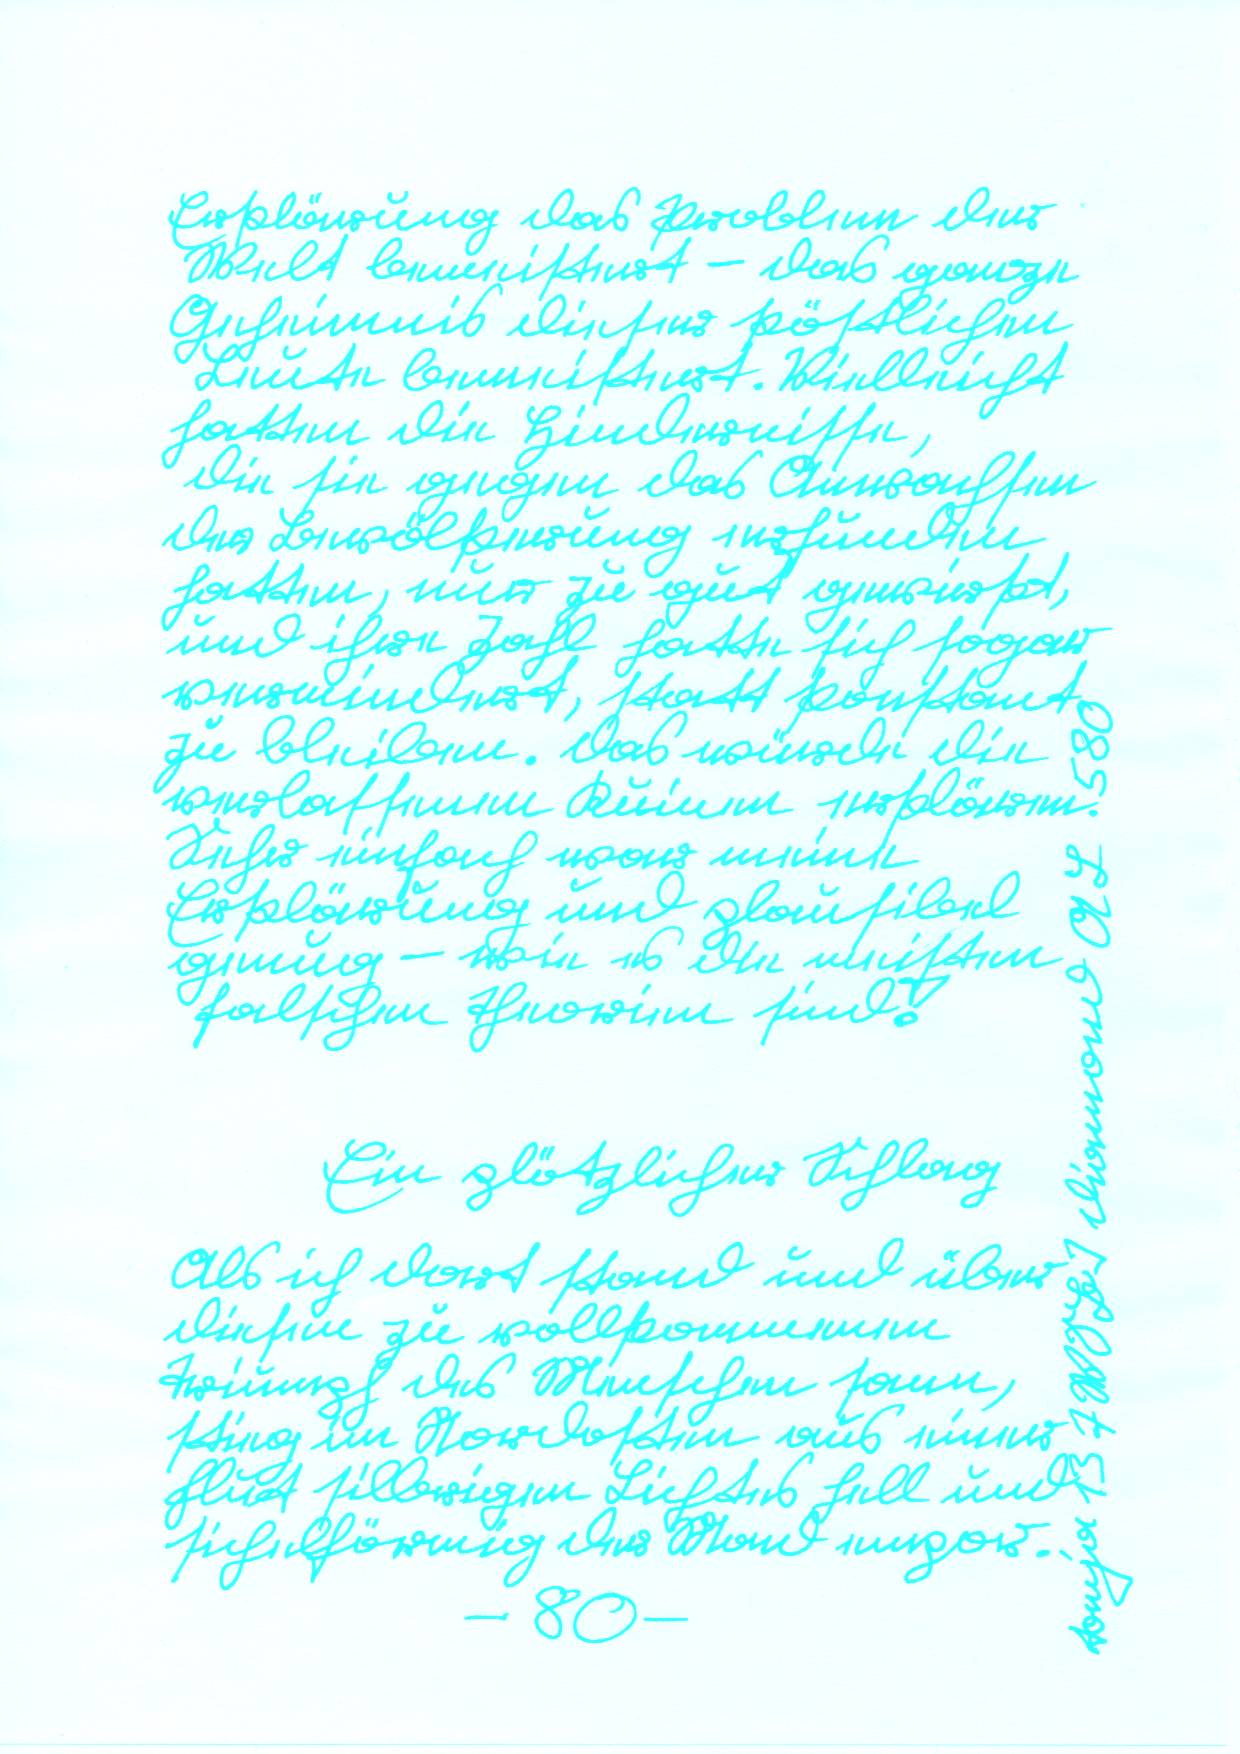 Erklärung das Problem der
Welt bemeistert – das ganze
Geheimnis dieser köstlichen
Leute bemeistert. Vielleicht
hatten die Hindernisse,
die sie gegen das Anwachsen
der Bevölkerung erfunden
hatten, nur zu gut gewirkt,
und ihre Zahl hatte sich sogar
vermindert, statt konstant
zu bleiben. Das würde die
verlassenen Ruinen erklären.
Sehr einfach war meine
Erklärung und plausibel
genug – wie es die meisten
falschen Theorien sind!
Ein plötzlicher Schlag
Als ich dort stand und über
diesen zu vollkommenen
Triumph des Menschen sann,
stieg im Nordosten aus einer
Flut silbrigen Lichtes hell und
sichelförmig der Mond empor.
– 80 –